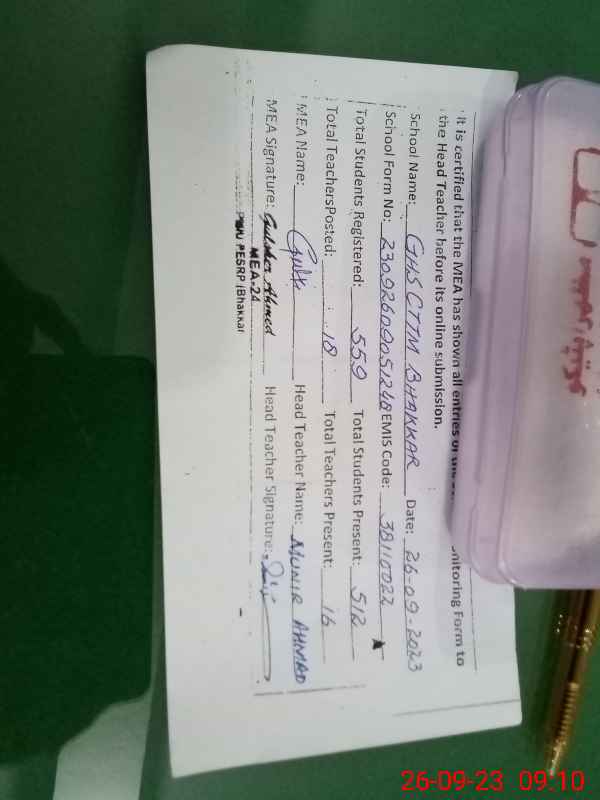 It is certified that the MEA has shown all entries of the Monitoring Form to
the Head Teacher before its online submission.
School Name: GHS CTTM BHAKKAR Date: 26-09-2023
School Form No: 23092609051248 EMIS Code: 38110022
Total Students Registered: 559 Total Students Present: 512
Total TeachersPosted: 18 Total Teachers Present: 16
MEA Name: Head Teacher Name: MUNIR AHMAD
MEA Signature: Ahmed Head Teacher Signature:
MEA-24
PESRP Bhakkar
26-09-23 09:10